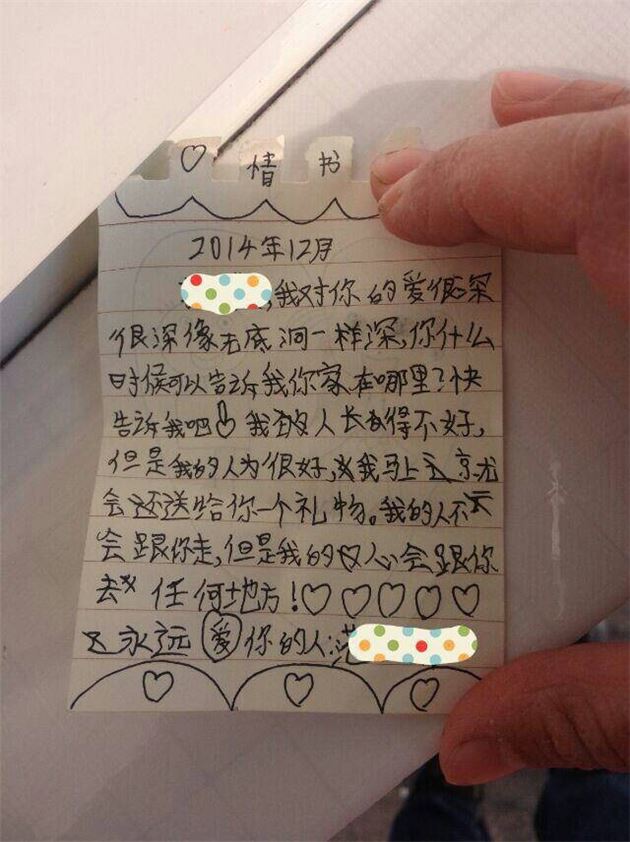 ♡ 情书
2014年12月
,我对你的爱很深
很深像无底洞一样深,你什么
时候可以告诉我你家在哪里?快
告诉我吧 我的人长得不好,
但是我的人为很好,我马上 就
会还送给你一个礼物。我的人不
会跟你走,但是我的心会跟你
去 任何地方!♡♡♡♡♡
永远爱你的人:范
♡ ♡ ♡